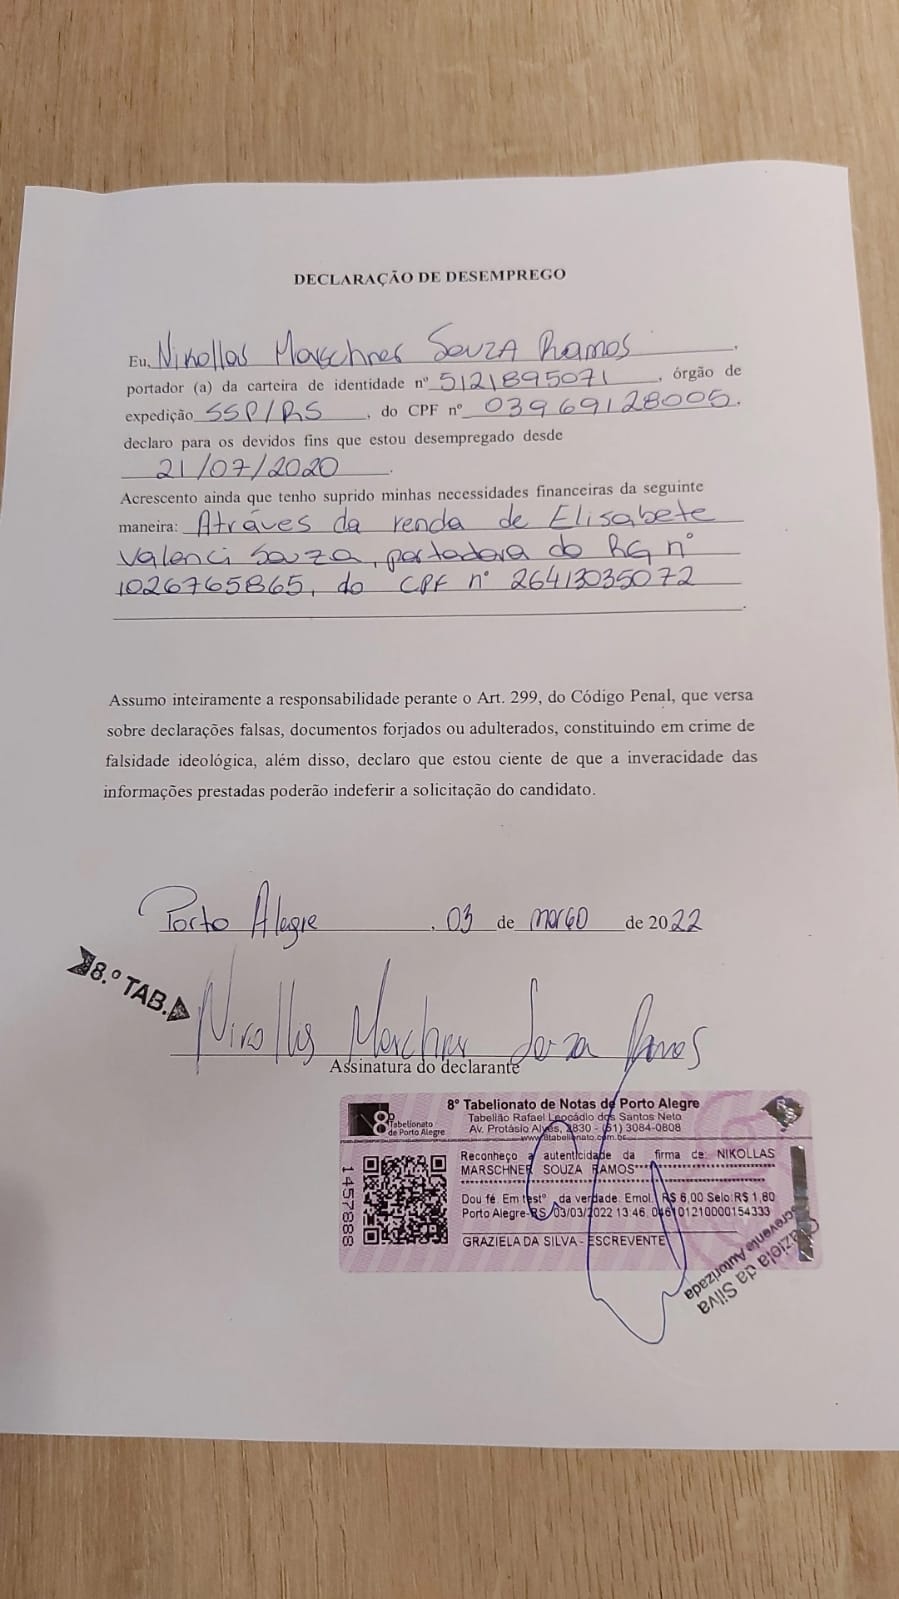 DECLARAÇÃO DE DESEMPREGO
Eu, Nikollas Marschner Souza Ramos,
portador (a) da carteira de identidade nº 5121895071, órgão de
expedição SSP/RS, do CPF nº 03969128005,
declaro para os devidos fins que estou desempregado desde
21/07/2020.
Acrescento ainda que tenho suprido minhas necessidades financeiras da seguinte
maneira: Atráves da renda de Elisabete
Valenci Souza, portadora do RG nº
1026765865, do CPF nº 26413035072
Assumo inteiramente a responsabilidade perante o Art. 299, do Código Penal, que versa
sobre declarações falsas, documentos forjados ou adulterados, constituindo em crime de
falsidade ideológica, além disso, declaro que estou ciente de que a inveracidade das
informações prestadas poderão indeferir a solicitação do candidato.
Porto Alegre, 03 de março de 2022
8.º TAB.
Nikollas Marschner Souza Ramos
Assinatura do declarante
8º Tabelionato de Porto Alegre
8º Tabelionato de Notas de Porto Alegre
Tabelião Rafael Leocádio dos Santos Neto
Av. Protásio Alves, 2830 - (51) 3084-0808
www.8tabelionato.com.br
1457888
Reconheço a autenticidade da firma de: NIKOLLAS
MARSCHNER SOUZA RAMOS
Dou fé. Em testº da verdade. Emol. R$ 6,00 Selo:R$ 1,80
Porto Alegre-RS, 03/03/2022 13:46, 046101210000154333
GRAZIELA DA SILVA - ESCREVENTE
Graziela da Silva
Escrevente Autorizada